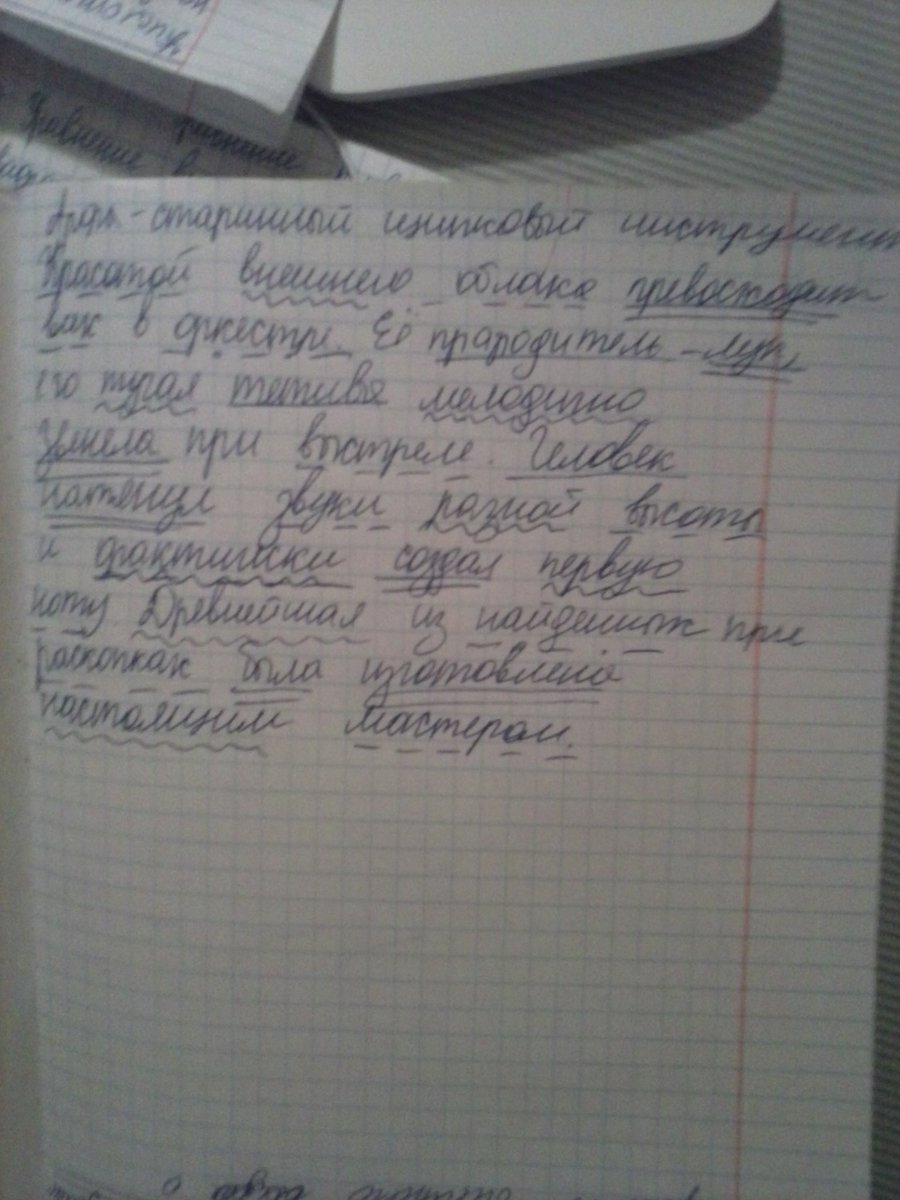 Древние
Арфа - старинный щипковый инструмент
Красотой внешнего облака превосходит
вах в оркестре. Её прародитель - лук,
его тугая тетива мелодично
умнела при выстреле. Человек
натянул звуки разной высоты
и фактически создал первую
ноту. Древнейшая из найденных при
раскопках была изготовлена
настоящим мастером.